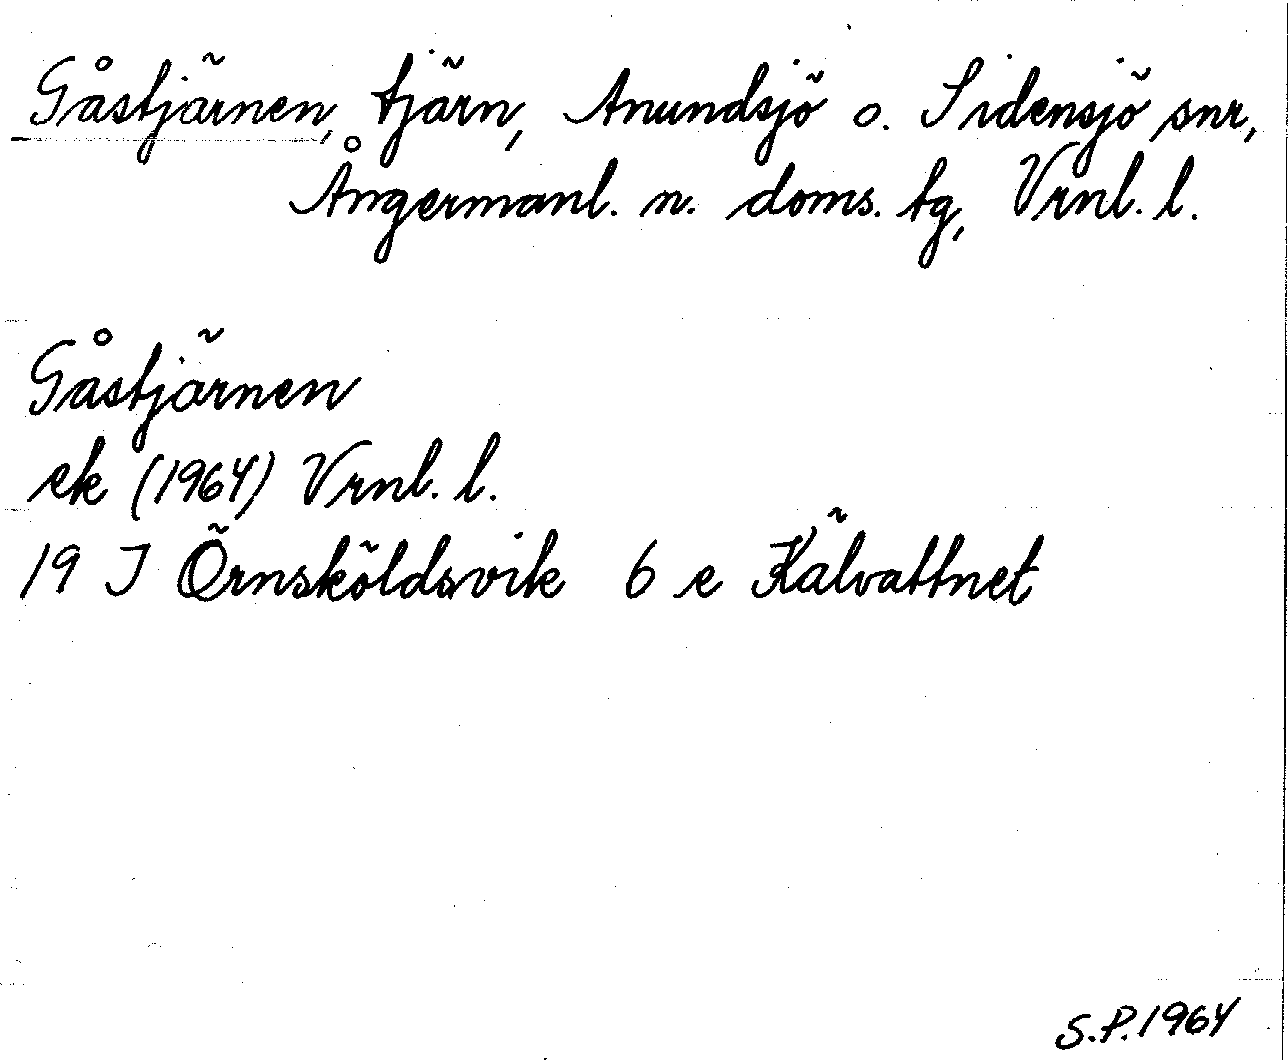 Gåstjärnen, tjärn, Anundsjö o. Sidensjö snr,
Ångermanl. n. doms. tg, Vrnl. l.
Gåstjärnen
ek (1964) Vrnl. l.
19 I Örnsköldsvik 6 e Kälvattnet
S.P. 1964